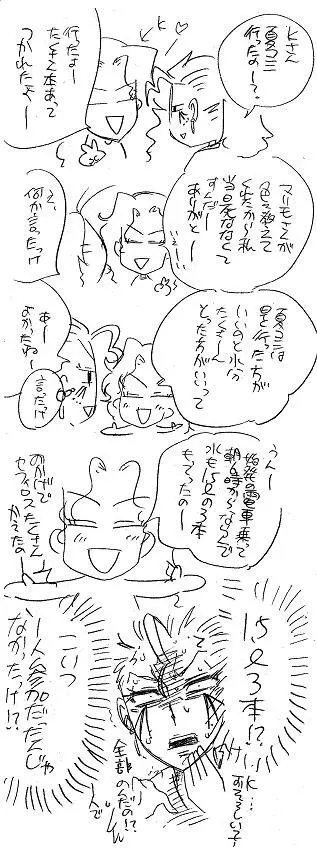 Kさん
夏コミ
行ったのー？
行たよー
たくさん本あって
つかれたよー
K
マリモさんが
色々教えて
くれたから私
当日死ななくて
すんだー
ありがとー
え、
何か言たっけ
夏コミは
早く行った方が
いいのと水分
たくさーん
とった方がいいって
あー
よかったねー
言たっけ
うんー
始発の電車乗って
朝6時からならんで
水も1.5ℓの3本
もってったのー
おかげで
セフィロスたくさん
かえたの
1.5ℓ3本!?
こいつ
一人参加だったんじゃ
なかったっけ!?
K…
恐ろしい子…
全部
のんだの!?